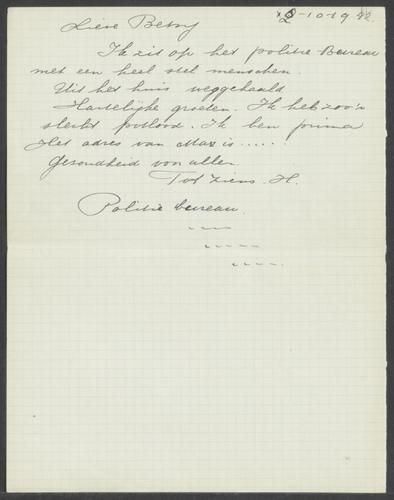 2-10-1942
Lieve Betsy
Ik zit op het politie-Bureau
met een heel stel menschen.
Uit het huis weggehaald
Hartelijke groeten. Ik heb zoo'n
slecht potlood. Ik ben prima
Het adres van Max is.....
Gezondheid voor allen
Tot ziens. H.
Politie bureau.